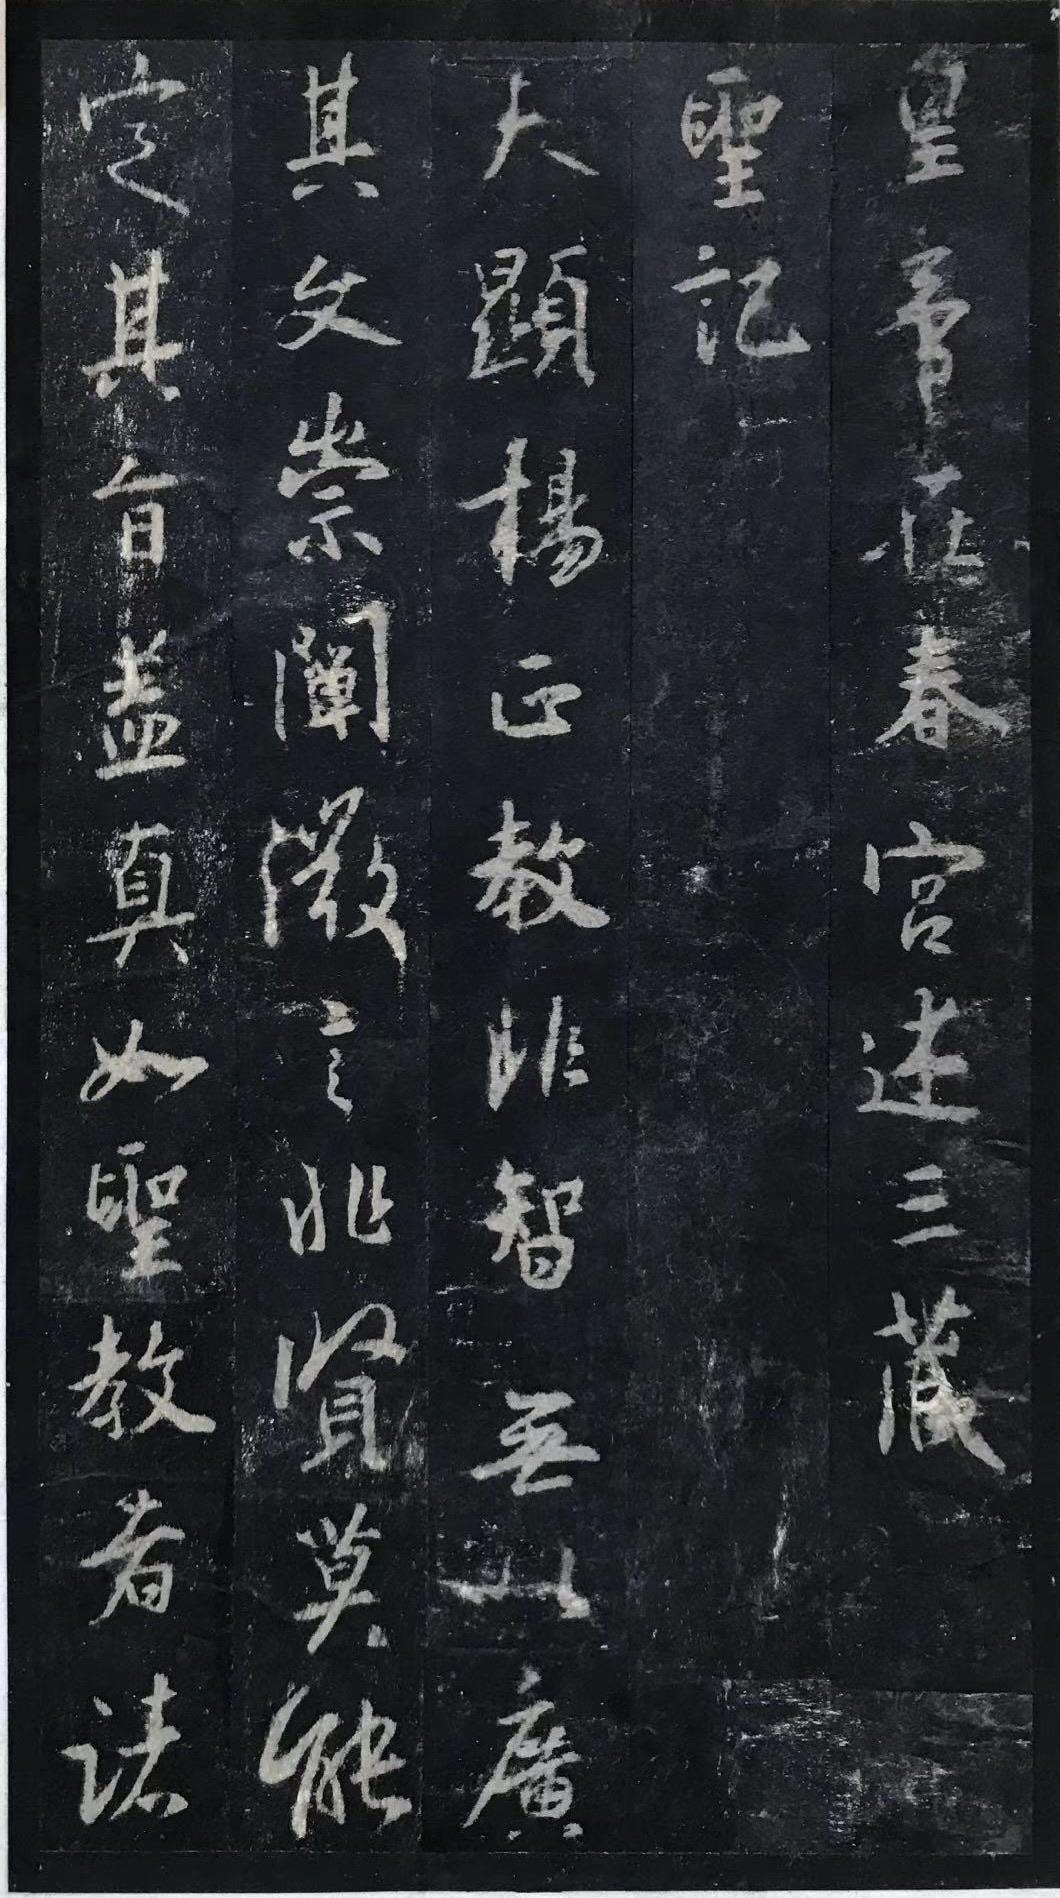 皇帝在春宮述三藏
聖記
夫顯揚正教非智無以廣
其文崇闡微言非賢莫能
定其旨蓋真如聖教者諸